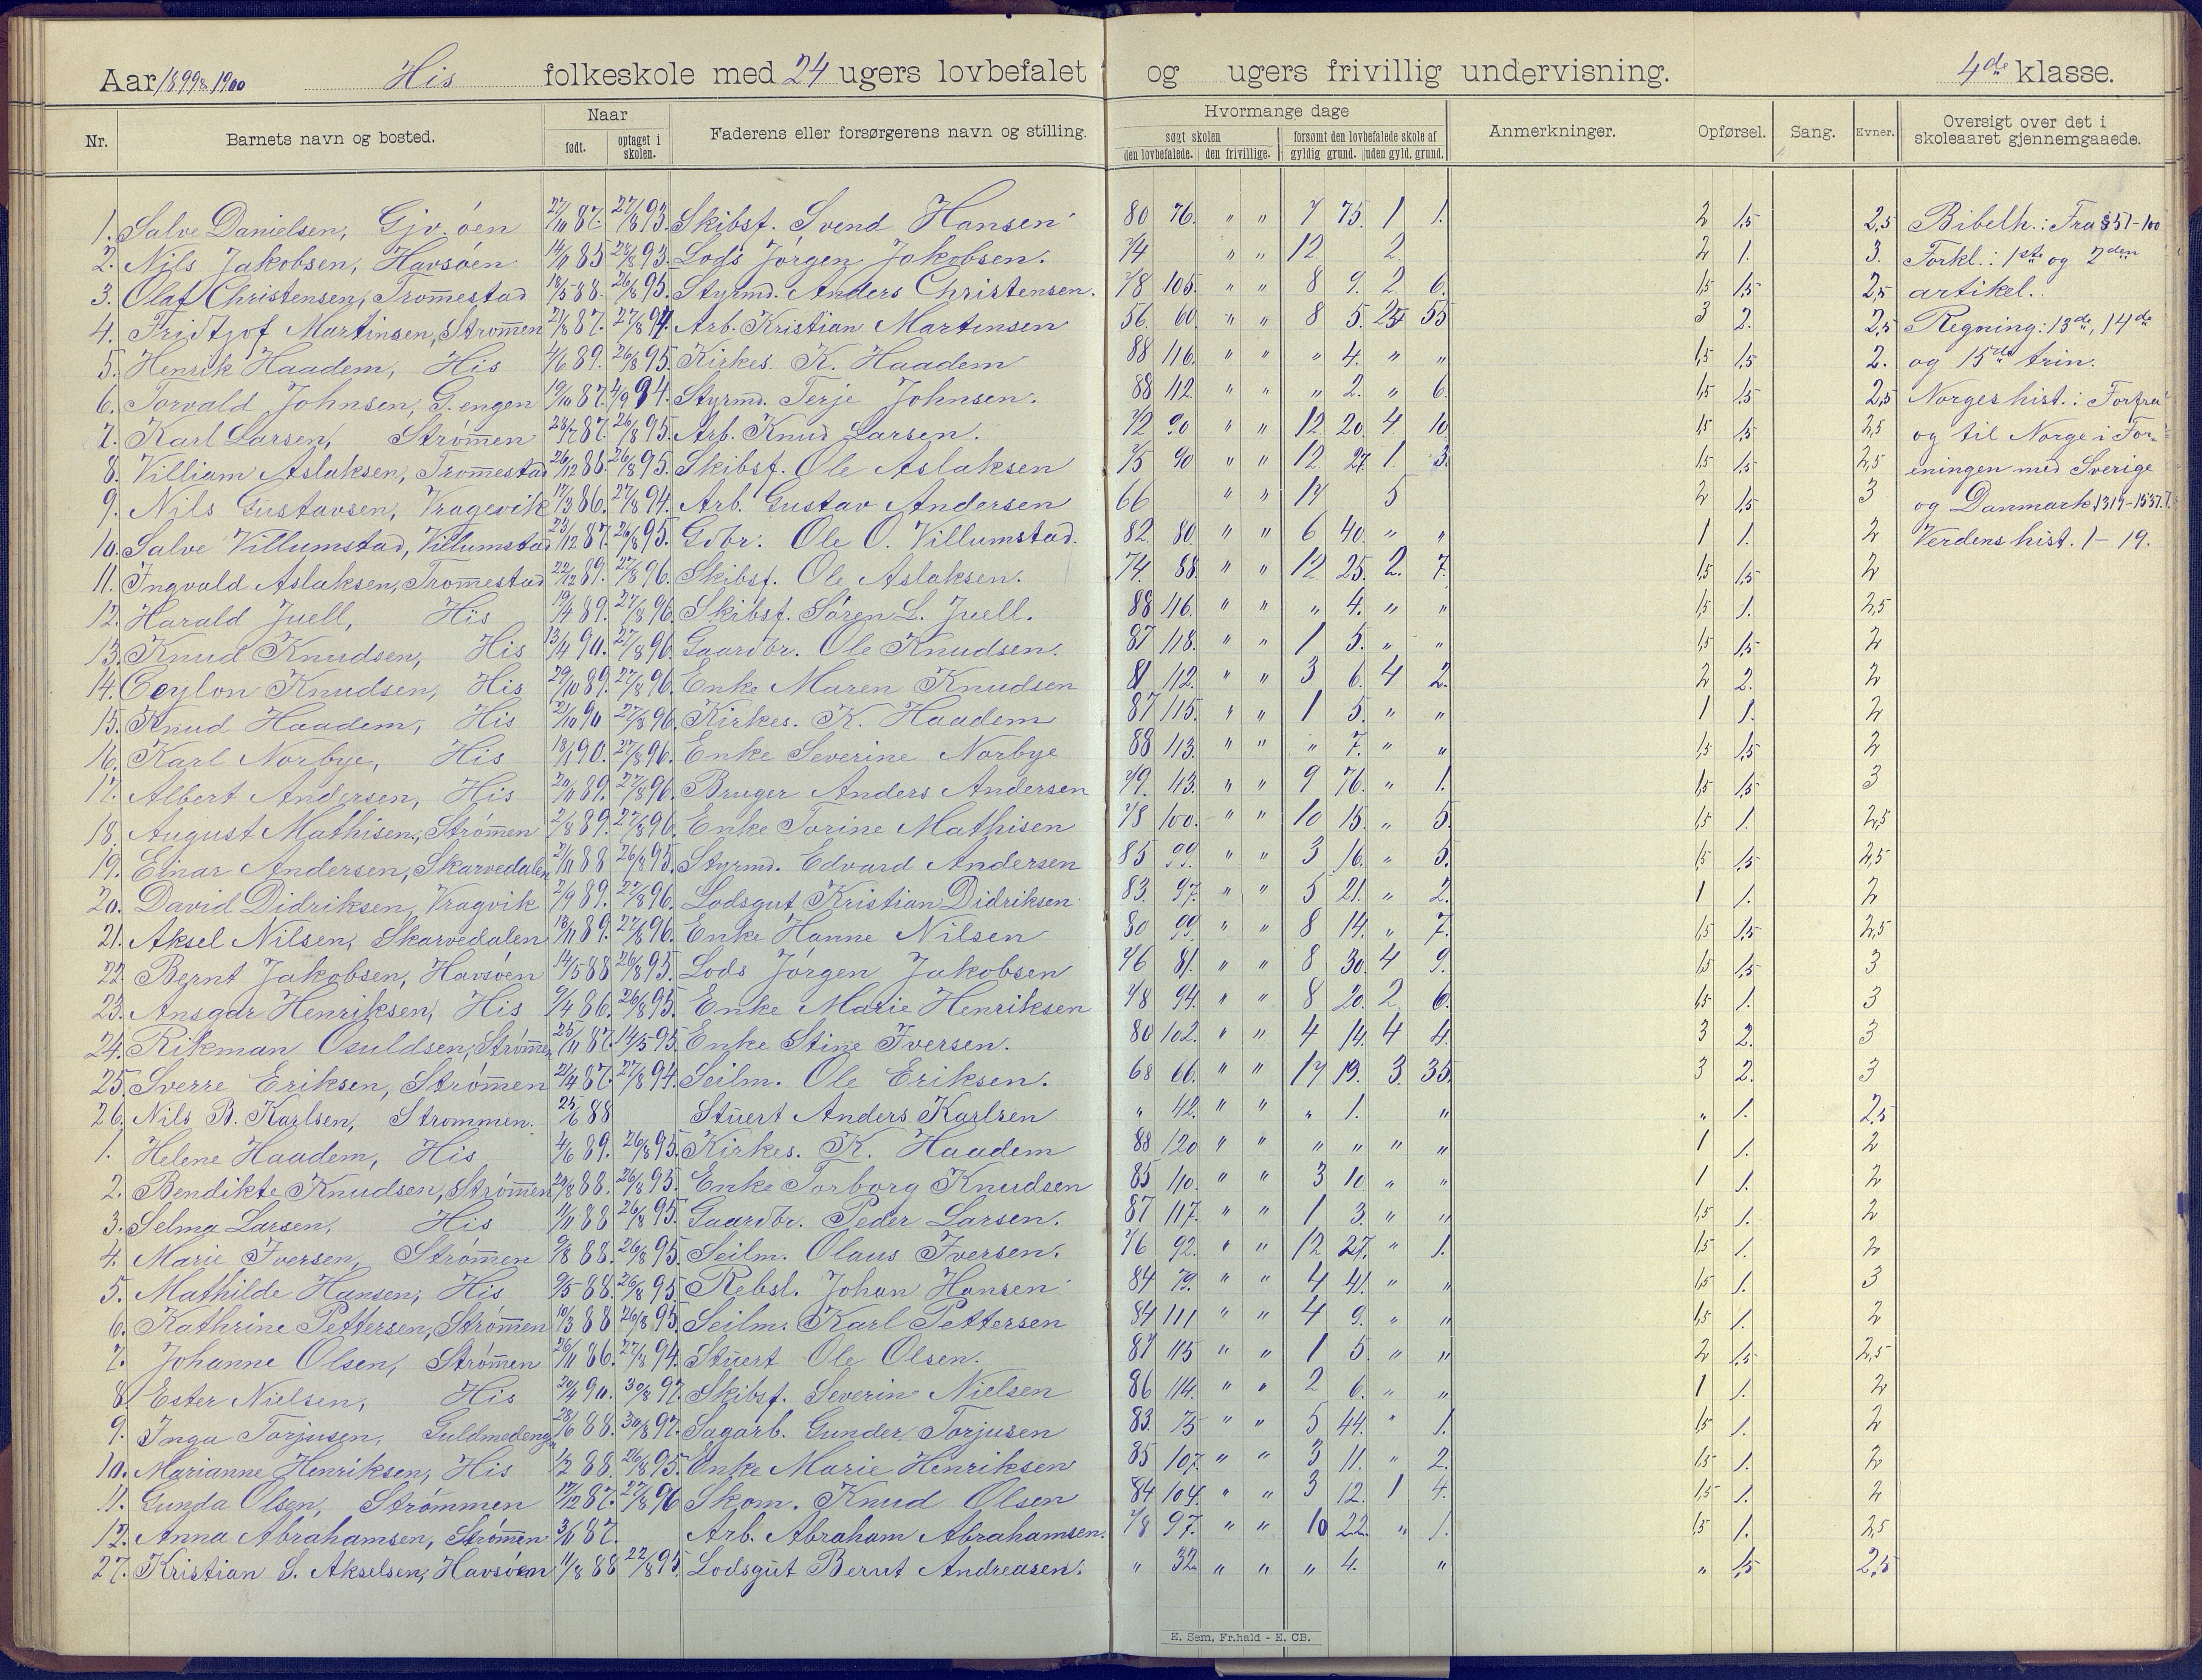 Aar 1899 & 1900 His folkeskole med 24 ugers lovbefalet og ugers frivillig undervisning. 4de klasse.
Nr. Barnets navn og bosted. Naar født. optaget i skolen. Faderens eller forsørgerens navn og stilling. Hvormange dage søgt skolen den lovbefalede. den frivillige. forsømt den lovbefalede skole af gyldig grund. uden gyld. grund. Anmerkninger. Opførsel. Sang. Evner. Oversigt over det i skoleaaret gjennemgaaede.
1. Salve Danielsen, Gjv.öen 27/10 87. 27/8 93. Skibsf. Svend Hansen 80 76. " " 7 75. 1 1. 2 1,5 2,5 Bibelh.: Fra § 51-100
2. Nils Jakobsen, Havsöen 85 28/8 93. Lods Jörgen Jakobsen. 74 " " 12 2. 2 1. 3. Forkl.: 1ste og 2den
3. Olaf Christensen, Trom̅estad 18/5 88. 26/8 95. Styrmd. Anders Christensen. 78 105. " " 8 9. 2 6. 1,5 1,5 2,5 artikel.
4. Fridtjof Martinsen, Strøm̅en 21/8 87. 27/8 94. Arb. Kristian Martinsen 56 60. " " 8 5. 25 55 3 2. 2,5 Regning: 13de, 14de
5. Henrik Haadem, His 4/6 89. 26/8 95. Kirkes. K. Haadem 88 116. " " " 4. " " 1,5 1,5 2. og 15de trin.
6. Torvald Johnsen, G.engen 19/10 87. 4/9 94. Styrmd. Terje Johnsen. 88 112. " " " 2. " 6. 1,5 1,5 2,5 Norges hist.: Forfra
7. Karl Larsen, Ström̅en 28/7 87. 26/8 95. Arb. Knud Larsen. 72 90 " " 12 20. 4 10 1,5 1,5 2,5 og til Norge i For-
8. Villiam Aslaksen, Trom̅estad 26/12 86. 26/8 95. Skibsf. Ole Aslaksen 75 90 " " 12 27. 1. 3. 1,5 1,5 2,5 eningen med Sverige
9. Nils Gustavsen, Vragevik 17/3 86. 27/8 94. Arb. Gustav Andersen 66 " " 17 5 2 1,5 3 og Danmark 1319-1537.
10. Salve Villumstad, Villumstad 23/12 87. 26/8 95. Gdbr. Ole O. Villumstad. 82. 80. " " 6 40. " " 1 1. 2 Verdens hist. 1-19.
11. Ingvald Aslaksen, Tromestad 22/12 89. 27/8 96. Skibsf. Ole Aslaksen. 74. 88. " " 12 25. 2. 7. 1,5 1,5 2
12. Harald Juell, His 19/4 89. 27/8 96. Skibsf. Sören L. Juell. 88 116. " " " 4. " " 1,5 1. 2,5
13. Knud Knudsen, His 13/4 90. 27/8 96. Gaardbr. Ole Knudsen. 87 118. " " 1 5. " " 1,5 1,5 2
14. Ceylon Knudsen, His 29/10 89. 27/8 96. Enke Maren Knudsen 81 112. " " 3 6. 4 2. 2 2. 2
15. Knud Haadem, His 21/10 90 27/8 96. Kirkes. K. Haadem 87 115. " " 1 5. " " 1 1. 2
16. Karl Norbye, His 18/1 90. 27/8 96. Enke Severine Norbye 88 113. " " " 7. " " 1,5 1,5 2
17. Albert Andersen, His 20/11 89. 27/8 96. Bruger Anders Andersen 79. 43. " " 9 76. " 1. 1,5 1,5 3
18. August Mathisen, Ström̅en 2/8 89. 27/8 96. Enke Torine Mathisen 78 100. " " 10 15. " 5. 1,5 1. 2,5
19. Einar Andersen, Skarvedalen 21/11 88 26/8 95. Styrmd. Edvard Andersen 85 99. " " 3 16. " 5. 1,5 1,5 2,5
20. David Didriksen, Vragvik 2/9 89. 27/8 96. Lodsgut Kristian Didriksen 83. 97. " " 5 21. " 2. 1 1. 2
21. Aksel Nilsen, Skarvedalen 18/11 89. 27/8 96. Enke Hanne Nilsen 80 99. " " 8 14. " 7. 1,5 1,5 2,5
22. Bernt Jakobsen, Havsöen 14/5 88 26/8 95. Lods Jörgen Jakobsen 76 81. " " 8 30. 4 9. 1,5 1,5 3
23. Ansgar Henriksen, His 9/4 86. 26/8 95. Enke Marie Henriksen 78 94. " " 8 20. 2 6. 1,5 1. 3
24. Rikman Osuldsen, Ström̅en 25/11 87. 14/5 95. Enke Stine Iversen. 80 102. " " 4 14. 4 4. 3 2. 3
25. Sverre Eriksen, Ström̅en 21/4 87. 27/8 94. Seilm. Ole Eriksen. 68 66. " " 17 19. 3. 35. 3 2. 3
26. Nils B. Karlsen, Strommen. 25/6 88 Stuert Anders Karlsen " 42. " " " 1. " " 1. 2,5
1. Helene Haadem, His 4/6 89. 26/8 95. Kirkes. K. Haadem 88 120 " " " " " " 1 1. 2
2. Bendikte Knudsen, Ström̅en 24/8 88. 26/8 95. Enke Torborg Knudsen 85 110. " " 3 10 " " 1 1. 2
3. Selma Larsen, His 11/11 88 26/8 95. Gaardbr. Peder Larsen. 87 117. " " 1 3. " " 1,5 1. 2
4. Marie Iversen, Ström̅en 9/8 88. 26/8 95. Seilm. Olaus Iversen. 76 92. " " 12 27. " 1. 1,5 1. 2
5. Mathilde Hansen, His 9/5 88. 26/8 95 Rebsl. Johan Hansen 84 79. " " 4 41. " " 1,5 1. 3
6. Kathrine Pettersen, Ström̅en 10/3 88 26/8 95. Seilm. Karl Pettersen 84 111 " " 4 9. " " 1,5 1. 2
7. Johanne Olsen, Ström̅en 26/11 86. 27/8 94. Stuert Ole Olsen. 87 115 " " 1 5. " " 2 1,5 2,5
8. Ester Nielsen, His 20/4 90. 30/8 97. Skibsf. Severin Nielsen 86 114. " " 2 6. " " 1 1. 2
9. Inga Torjusen, Guldmedengen 28/6 88. 30/8 97. Sagarb. Gunder Torjusen 83. 75 " " 5 44. " 1. 1,5 1. 2
10. Marianne Henriksen, His 1/2 88. 26/8 95. Enke Marie Henriksen 85 107. " " 3 11. " 2. 1,5 1. 2
11. Gunda Olsen, Strömmen 17/12 87. 27/8 96 Skom. Knud Olsen 84 104. " " 3 12. 1 4. 1,5 1. 2
12. Anna Abrahamsen, Ström̅en 87. Arb. Abraham Abrahamsen. 78 97. " " 10 22. " 1. 1,5 1. 2,5
27. Kristian S. Akselsen, Havsöen 11/8 88 22/8 95. Lodsgut Bernt Andreasen. " 32. " " " 4. " " 1,5 2,5
E. Sem, Fr.hald - E. CB.